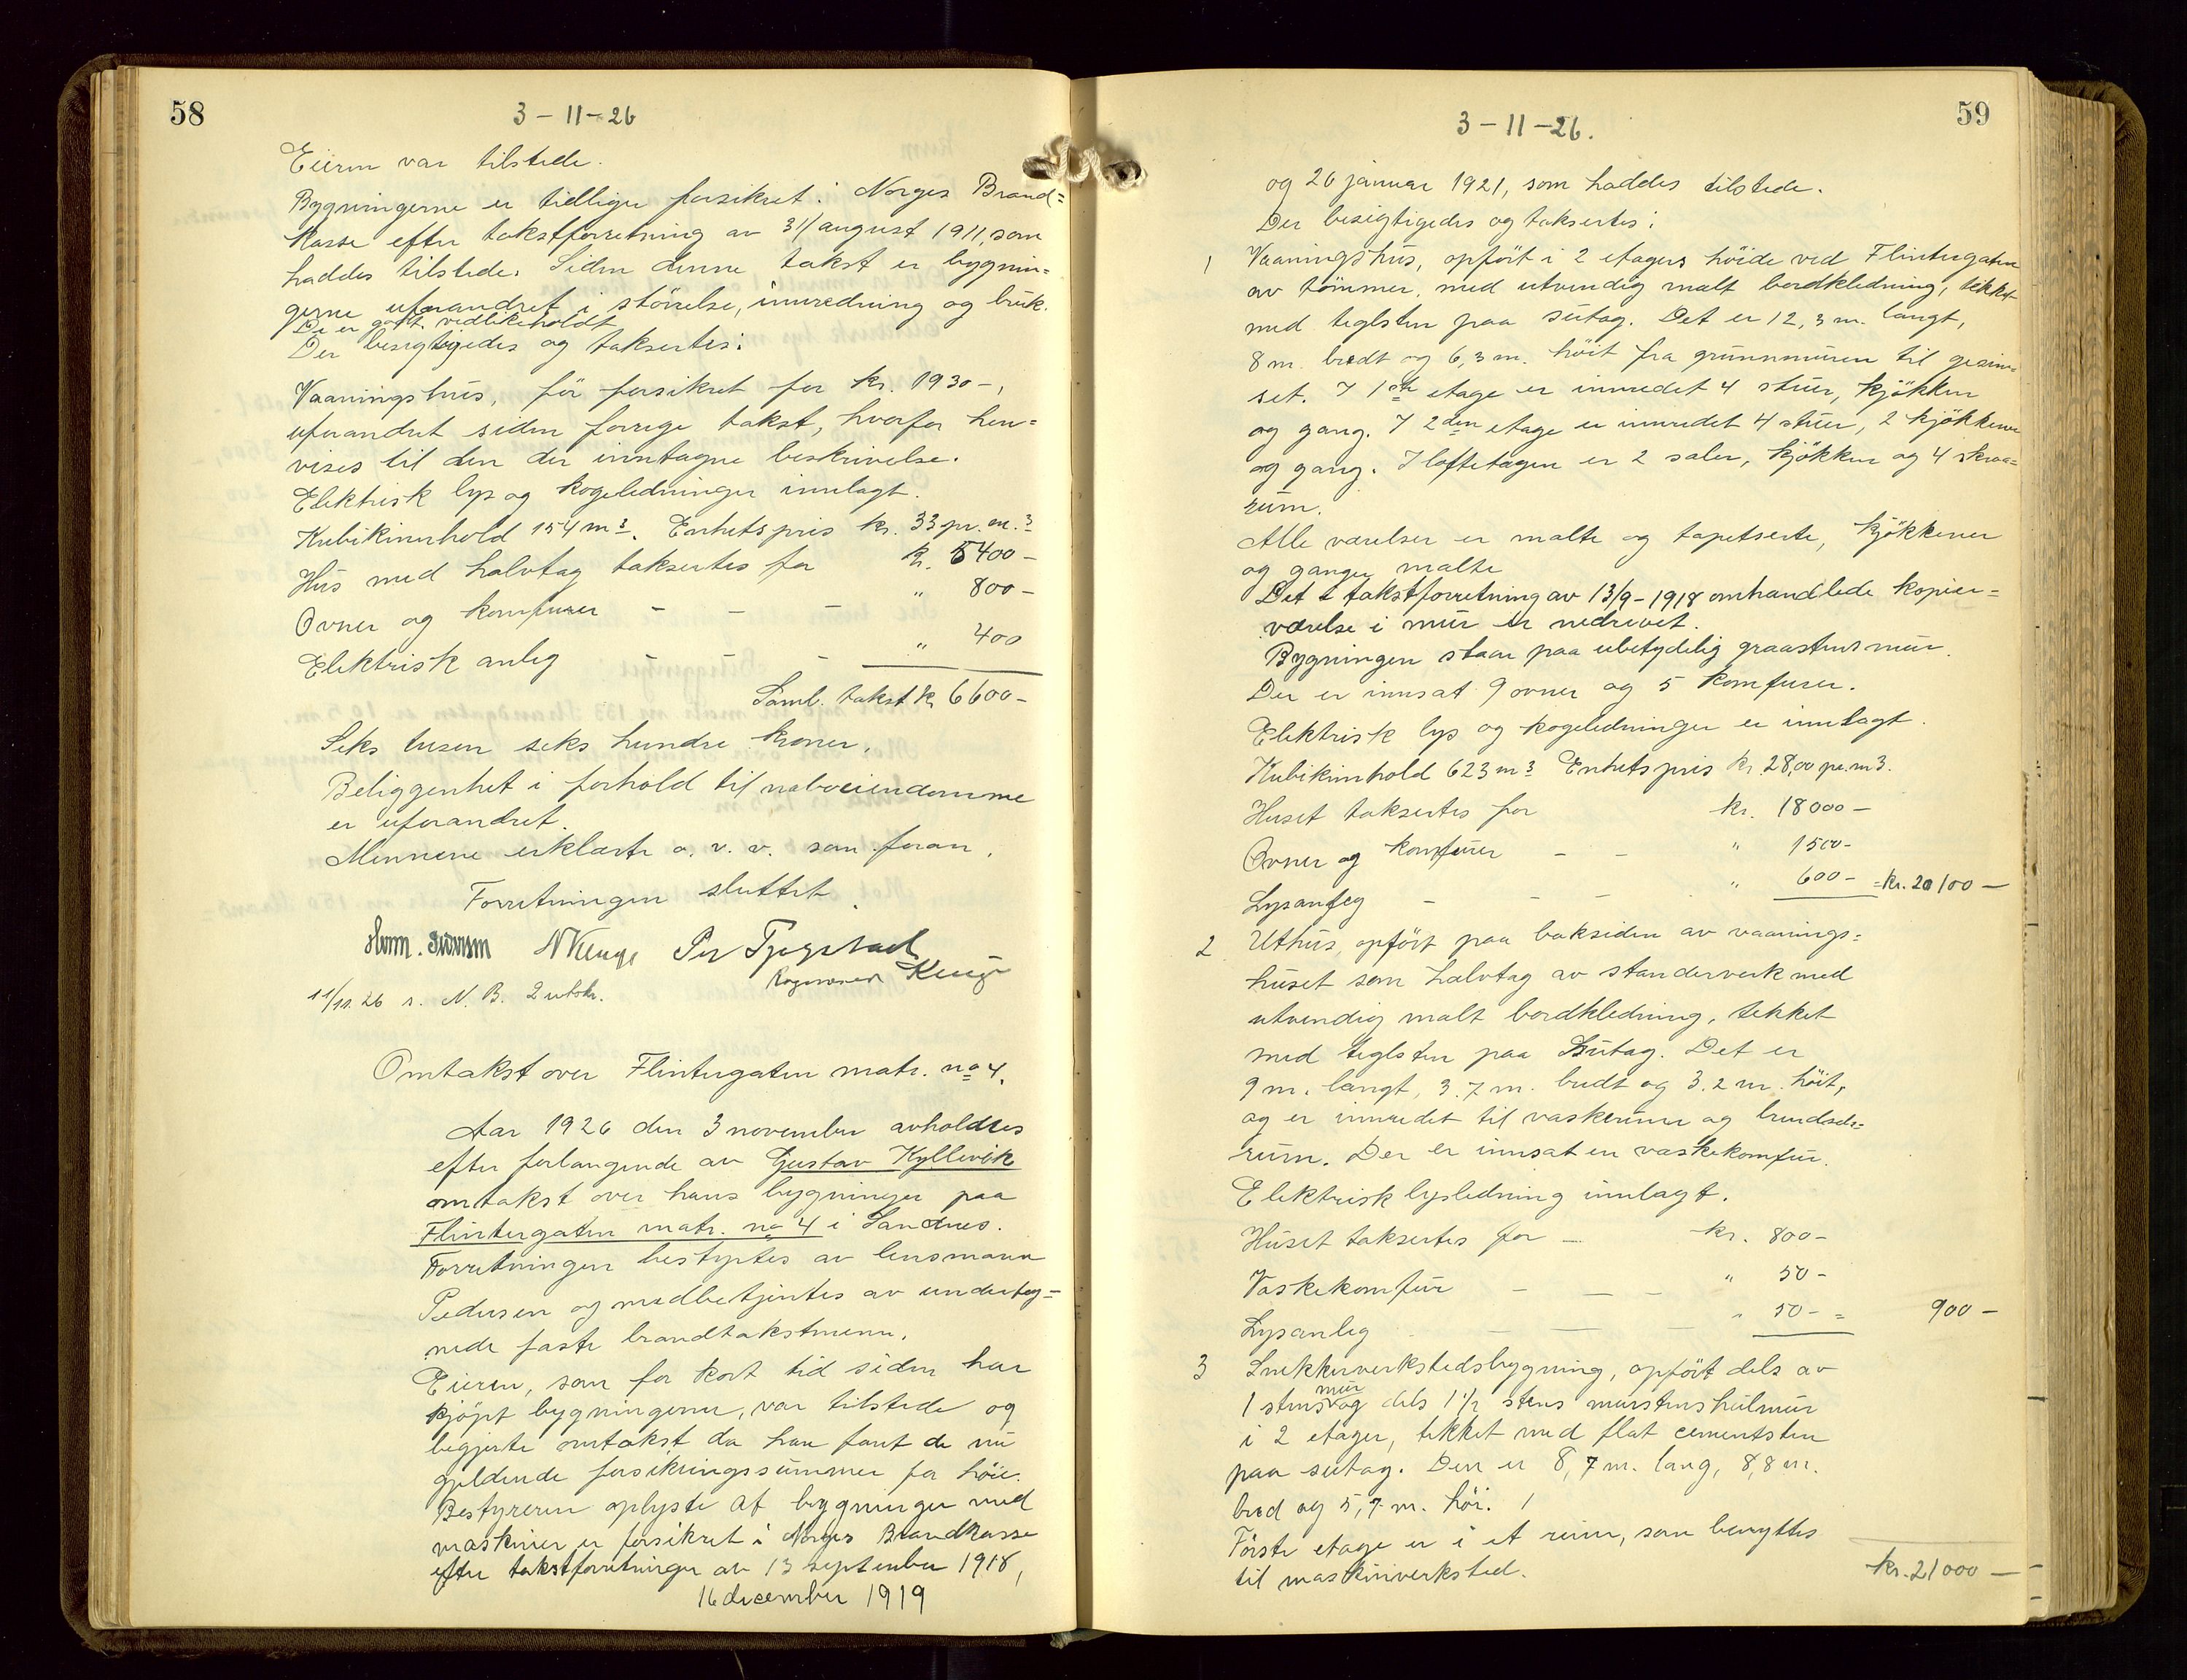 58
3-11-26
Eieren var tilstede.
Bygningerne er tidligere forsikret i Norges Brand=
kasse efter takstforretning av 31/august 1911, som
haddes tilstede. Siden denne takst er bygnin=
gerne uforandret i störrelse, innredning og bruk.
De er godt vedlikeholdt
Der besigtigedes og taksertes:
Vaaningshus, för forsikret for kr. 1930-,
uforandret siden forrige takst, hvorfor hen=
vises til den der inntagne beskrivelse.
Elektrisk lys og kogeledninger innlagt.
Kubikinnhold 154 m3. Enhetspris kr. 33 pr. m.3
Hus med halvtag taksertes for kr. 5400-
Ovner og komfurer - - - " 800-
Elektrisk anleg - - - " 400
Saml. takst kr. 6600-
Seks tusen seks hundre kroner.
Beliggenhet i forhold til naboeiendomme
er uforandret.
Mennene erklærte o. v. v. som foran.
Forretningen sluttet.
Per Tjessem
11/11 26 s. N. B. 2 utskr.
Omtakst over Flintergaten matr. no 4.
Aar 1926 den 3 november avholdtes
efter forlangende av Gustav Kyllevik
omtakst over hans bygninger paa
Flintergaten matr. no 4 i Sandnes.
Forretningen bestyrtes av lensmann
Pedersen og medbetjentes av underteg=
nede faste brandtakstmenn.
Eieren, som for kort tid siden har
kjöpt bygningerne, var tilstede og
begjerte omtakst da han fant de nu
gjeldende forsikringssummer for höie.
Bestyreren oplyste at bygninger med
maskiner er forsikret i Norges Brandkasse
efter takstforretninger av 13 september 1918,
16 december 1919
59
3-11-26.
og 26 januar 1921, som haddes tilstede.
Der besigtigedes og taksertes:
1 Vaaningshus, opfört i 2 etagers höide ved Flintergaten
av tömmer, med utvendig malt bordkledning, tekket
med teglsten paa sutag. Det er 12,3 m. langt,
8 m. bredt og 6,3 m. höit fra grunnmuren til gesim=
set. I 1ste etage er innredet 4 stuer, kjökken
og gang. I 2den etage er innredet 4 stuer, 2 kjökkener
og gang. I loftetagen er 2 saler, kjökken og 4 skraa=
rum.
Alle værelser er malte og tapetserte, kjökkener
og ganger malte
Det i takstforretning av 13/9-1918 omhandlede kopier=
værelse i mur er nedrevet.
Bygningen staar paa ubetydelig graastensmur.
Der er innsat 9 ovner og 5 komfurer.
Elektrisk lys og kogeledninger er innlagt.
Kubikinhold 623 m3 Enhetspris kr. 28,00 pr. m3.
Huset taksertes for kr. 18000-
Ovner og komfurer - - " 1500-
Lysanleg - - - " 600- = kr. 20100-
2 Uthus, opfört paa baksiden av vaanings=
huset som halvtag av standerverk med
utvendig malt bordkledning, tekket
med teglsten paa sutag. Det er
9 m. langt, 3.7 m. bredt og 3.2 m. höit,
og er innredet til vaskerum og brendsels=
rum. Der er innsat en vaskekomfur.
Elektrisk lysledning innlagt.
Huset taksertes for - kr. 800-
Vaskekomfur - - - " 50-
Lysanleg - - - " 50- = 900-
3 Snekkerverkstedsbygning, opfört dels av
1 stens mur og dels 1 1/2 stens murstenshulmur
i 2 etager, tekket med flat cementsten
paa sutag. Den er 8,7 m. lang, 8,8 m.
bred og 5,7 m. höi.
Förste etage er i et rum, som benyttes
til maskinverksted.
kr. 21000-